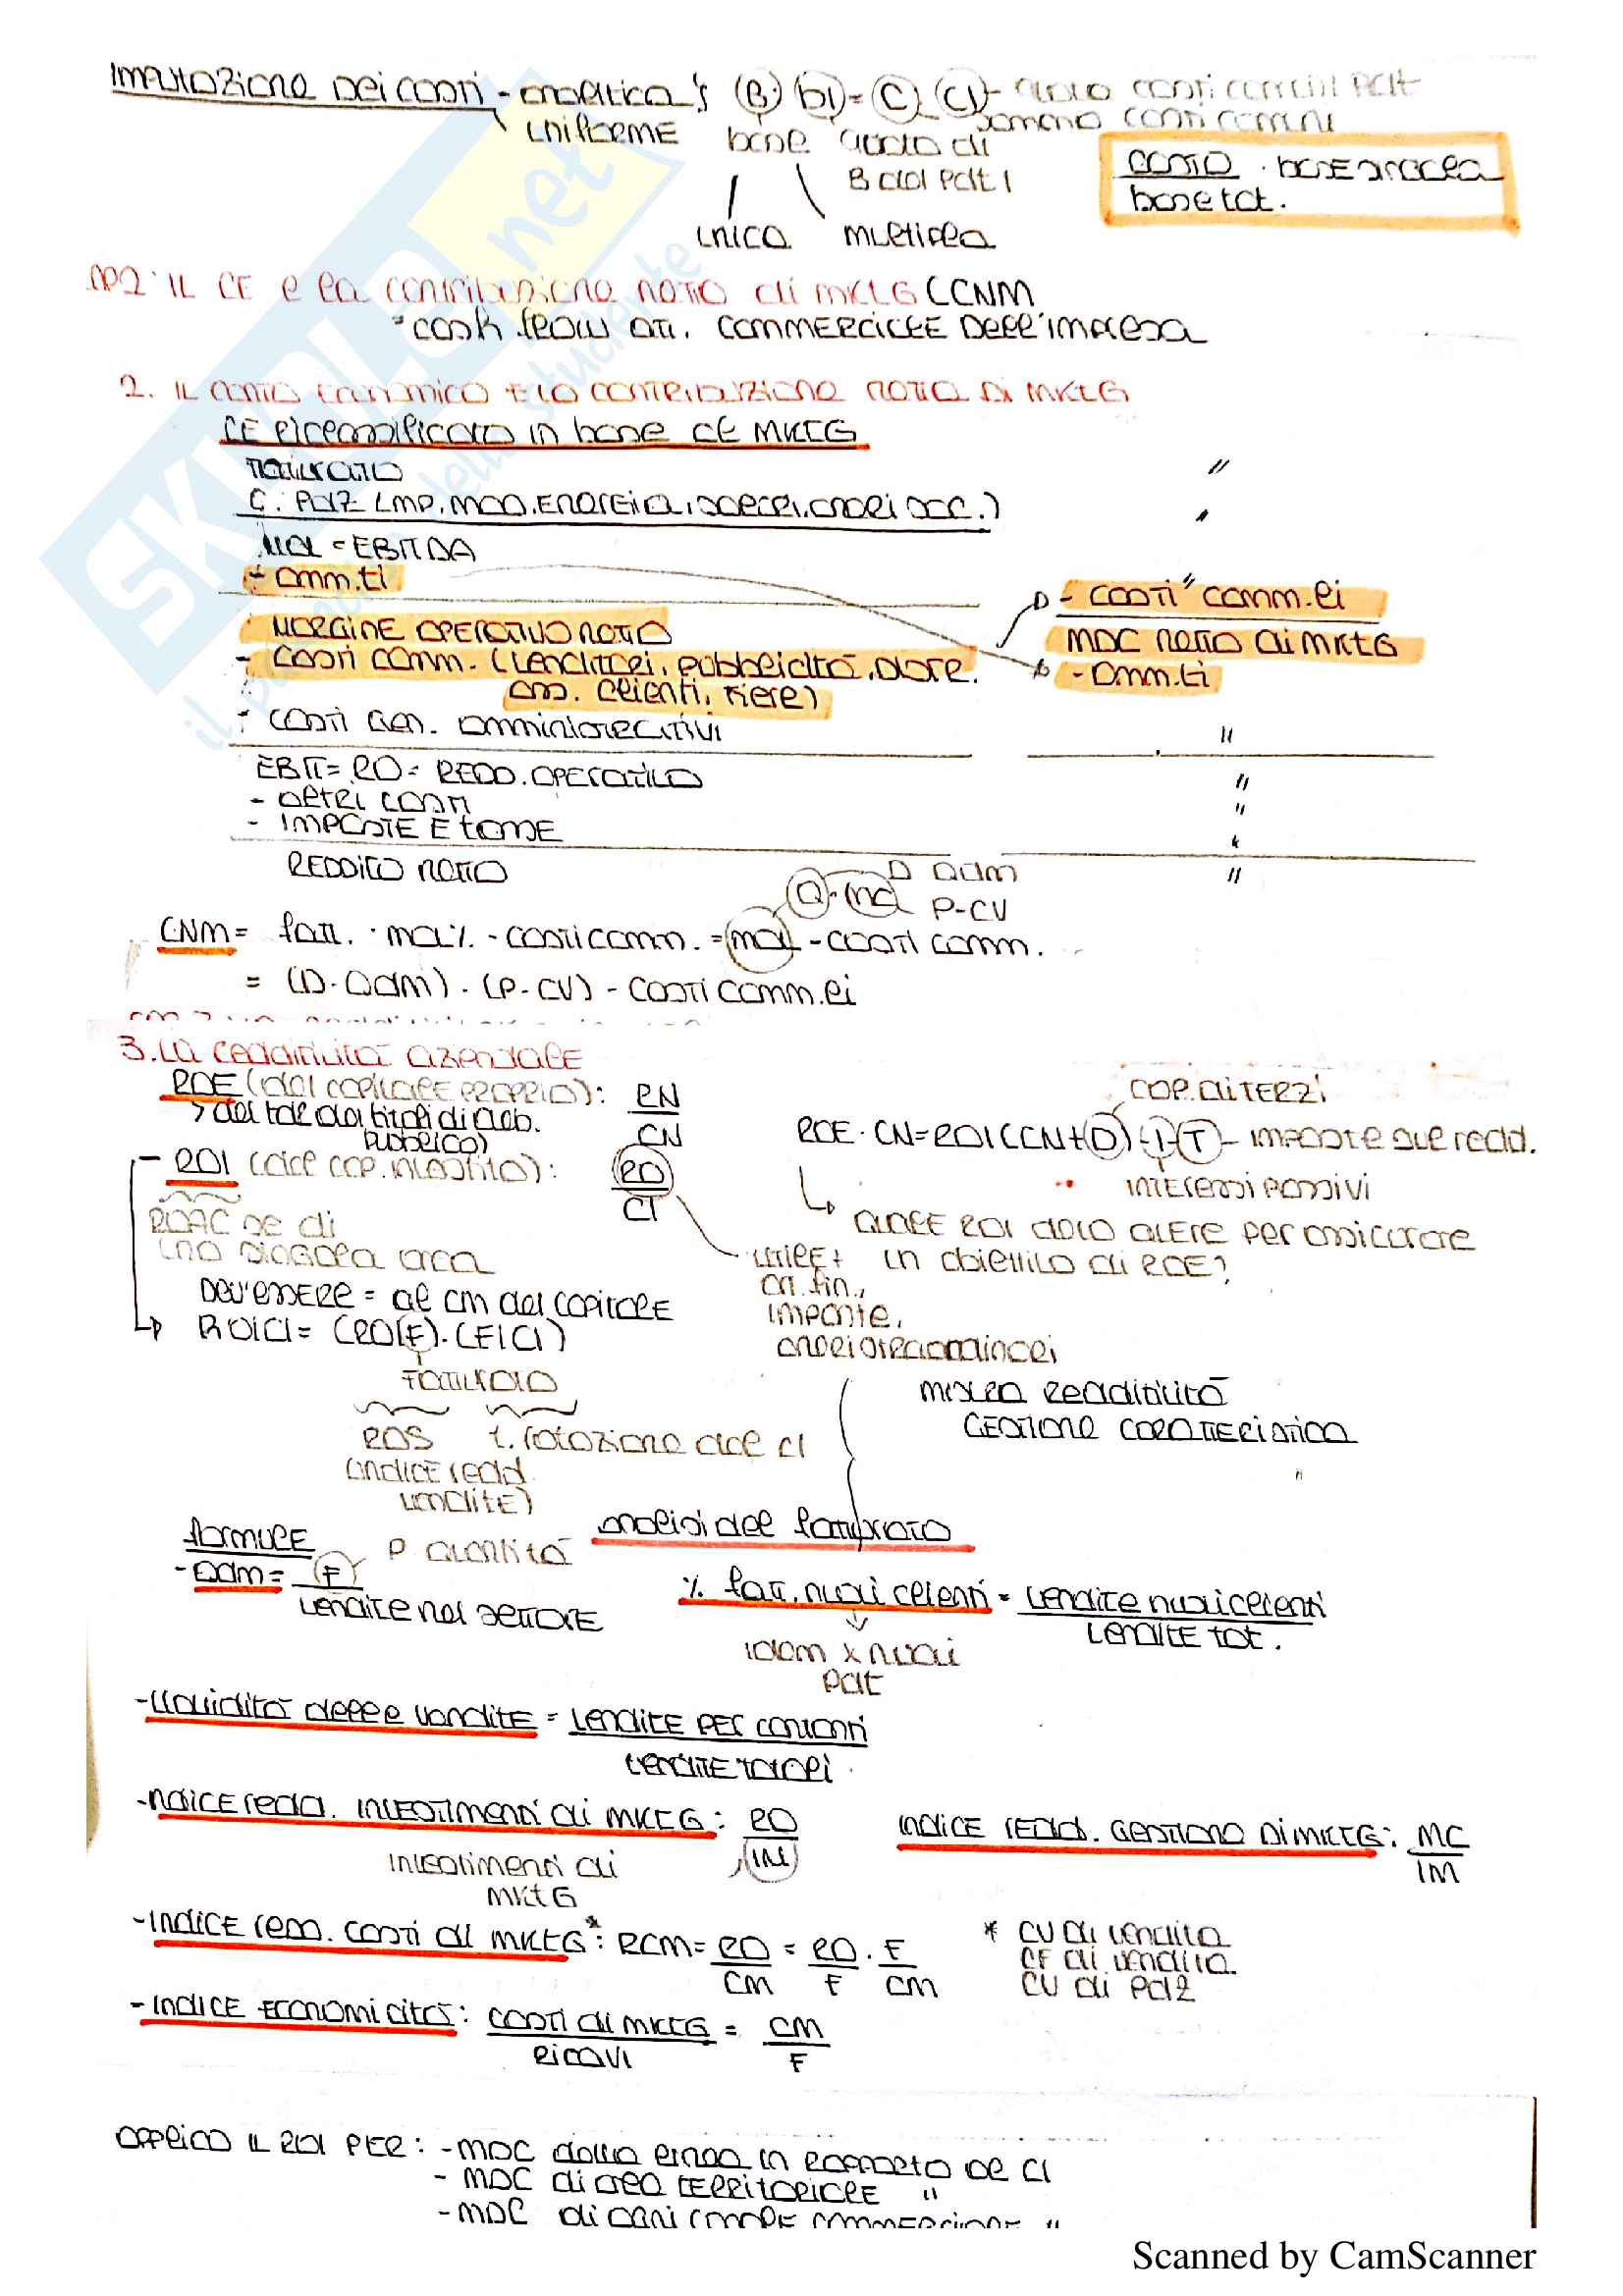 Imputazione dei costi - analitica
uniforme
B : b1 = C : C1 - quota costi comuni pdt
somma costi comuni
base quota di
B del pdt 1
unica multipla
costo · base singola
base tot.
CAP 2: IL CE e la contribuzione netta di MKTG (CNM
= cash flow att. commerciale dell'impresa
2. IL conto economico e la contribuzione netta di MKTG
CE riclassificato in base al MKTG
Fatturato "
C. pdz (mp, MOD, energia, spese, oneri acc.) "
MOL = EBITDA "
- amm.ti - costi comm.li
MARGINE OPERATIVO NETTO MDC netto di MKTG
- costi comm. (venditori, pubblicità, distr. - amm.ti
ass. clienti, fiere)
- costi gen. amministrativi "
EBIT = RO = REDD. OPERATIVO "
- altri costi "
- IMPOSTE E tasse "
REDDITO netto "
Q · mcl D · Qdm
P-CV
CNM = fatt. · mcl% - costi comm. = mcl - costi comm.
= (D · Qdm) · (P - CV) - costi comm.li
3. La redditività aziendale
ROE (del capitale proprio): RN
CN
> del tde dei titoli di deb.
pubblico)
- ROI (del cap. investito): RO
CI
cap. di terzi
ROE · CN = ROI (CN + D) - I - T - imposte sul redd.
interessi passivi
quale ROI devo avere per assicurare
un obiettivo di ROE?
ROAC se di
una singola area
DEV'ESSERE = al cm del capitale
utile +
on. fin.,
imposte,
oneri straordinari
ROICI = (RO/F) · (F/CI)
Fatturato
ROS t. rotazione del CI
(indice redd.
vendite)
misura redditività
GESTIONE CARATTERISTICA
analisi del fatturato
formule
quantità
- Qdm = F
vendite nel settore
% fatt. nuovi clienti = vendite nuovi clienti
vendite tot.
idem x nuovi
pdt
- liquidità delle vendite = vendite per contanti
vendite totali
- indice redd. investimenti di MKTG: RO
IM
investimenti di
MKTG
indice redd. gestione di MKTG: MC
IM
- INDICE rem. costi di MKTG*: RCM = RO = RO · F
CM F CM
* CV di vendita
CF di vendita
CV di pdz
- INDICE ECONOMICITÀ: costi di MKTG = CM
RICAVI F
APPLICO IL ROI PER: - MDC della linea in rapporto al CI
- MDC di area TERRITORIALE "
- MDC di ogni canale commerciale "
Scanned by CamScanner
SKUOLA.net